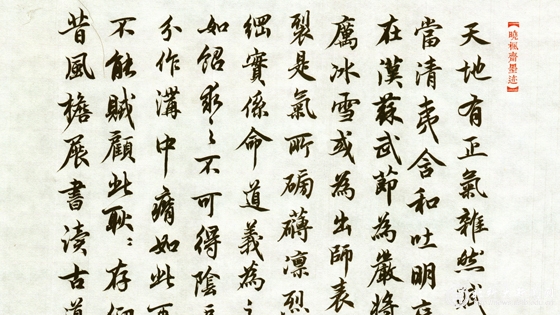 齋墨迹
天地有正氣雜然賦
當清夷含和吐明
在漢蘇武節為嚴將
厲冰雪或為出師表
裂是氣所磅礴凜烈
綱實係命道義為之
如飴求之不可得陰
分作溝中瘠如此再
不能賊顧此耿々存仰
昔風檐展書讀古道